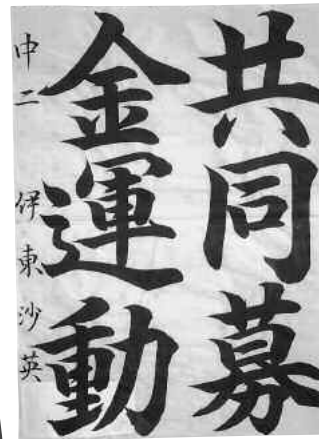 共同募
金運動
中二 伊東沙英